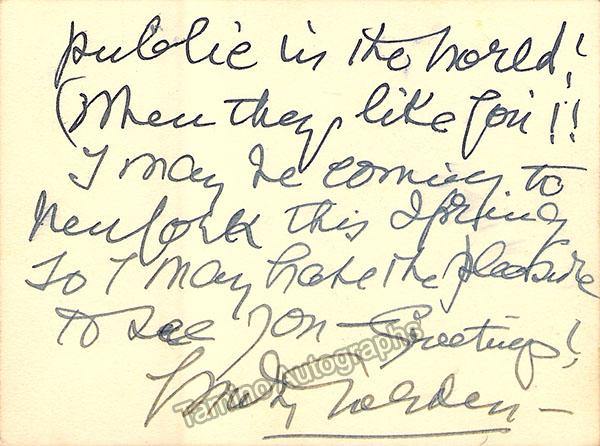 public in the world!
(When they like you!!
I may be coming to
New York this Spring
So I may have the pleasure
to see you – Greetings!
Tamino Autographs